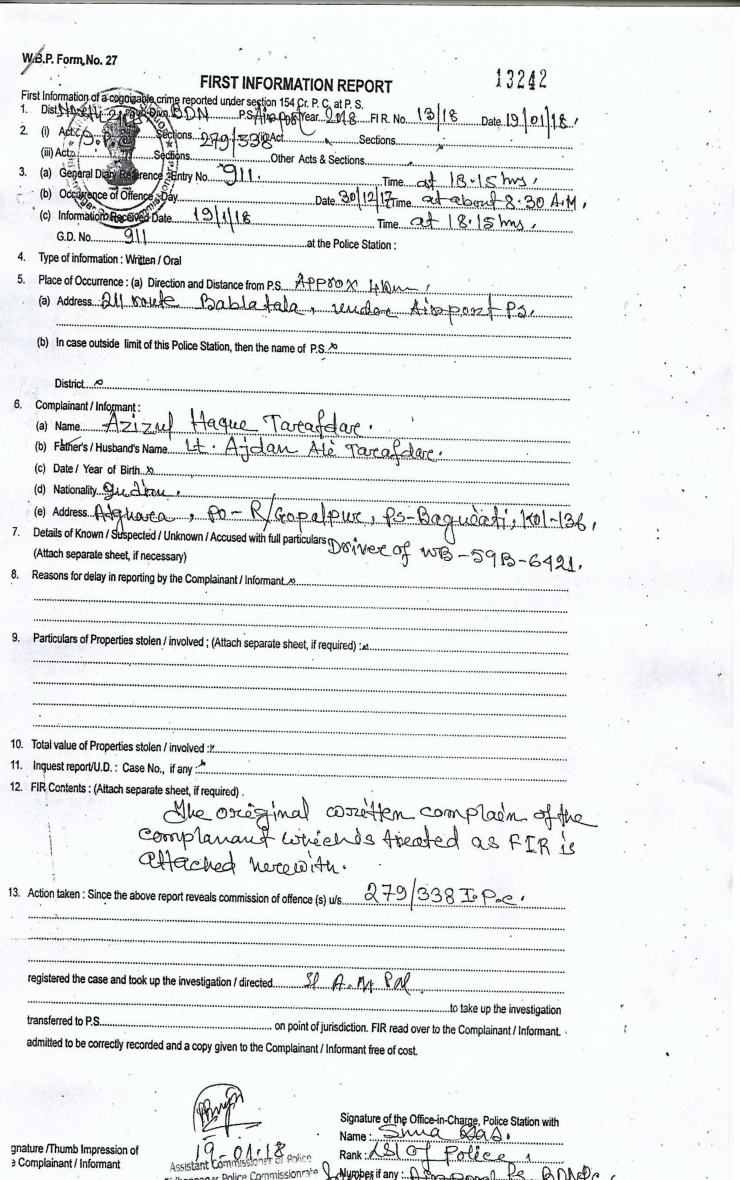 W.B.P. Form, No. 27
13242
FIRST INFORMATION REPORT
First Information of a cognizable crime reported under section 154 Cr. P. C. at P. S.
1. Dist. BDN P.S. Airport Year 2018 FIR. No. 13/18 Date 19/01/18.
2. (i) Act Sections 279/338 (ii) Act Sections
(iii) Act Sections Other Acts & Sections
3. (a) General Diary Reference : Entry No. 911. Time at 18.15 hrs,
(b) Occurrence of Offence : Day Date 30/12/17 Time at about 8.30 A.M,
(c) Information Received Date 19/1/18 Time at 18.15 hrs,
G.D. No. 911 at the Police Station :
4. Type of information : Written / Oral
5. Place of Occurrence : (a) Direction and Distance from P.S. Approx 4 km
(a) Address 211 route Bablatala, under Airport PS,
(b) In case outside limit of this Police Station, then the name of P.S. x
District x
6. Complainant / Informant :
(a) Name Azizul Haque Tarafdar.
(b) Father's / Husband's Name Lt. Ajdan Ali Tarafdar.
(c) Date / Year of Birth x
(d) Nationality Indian.
(e) Address Atghara, PO- R/Gopalpur, PS-Baguiati, Kol-136,
7. Details of Known / Suspected / Unknown / Accused with full particulars Driver of WB-59B-6421.
(Attach separate sheet, if necessary)
8. Reasons for delay in reporting by the Complainant / Informant x
9. Particulars of Properties stolen / involved ; (Attach separate sheet, if required) : x
10. Total value of Properties stolen / involved : x
11. Inquest report/U.D. : Case No., if any : x
12. FIR Contents : (Attach separate sheet, if required) .
The original written complain of the
complanant which is treated as FIR is
attached herewith.
13. Action taken : Since the above report reveals commission of offence (s) u/s. 279/338 I.P.C.
registered the case and took up the investigation / directed SI A.M. Pal
to take up the investigation
transferred to P.S. on point of jurisdiction. FIR read over to the Complainant / Informant.
admitted to be correctly recorded and a copy given to the Complainant / Informant free of cost.
19-01-18
Signature of the Office-in-Charge, Police Station with
Name : Das.
gnature /Thumb Impression of
Assistant Commissioner of Police
Rank : SI of Police
e Complainant / Informant
Police Commissionrate
Number if any : Airport PS. BDNPC